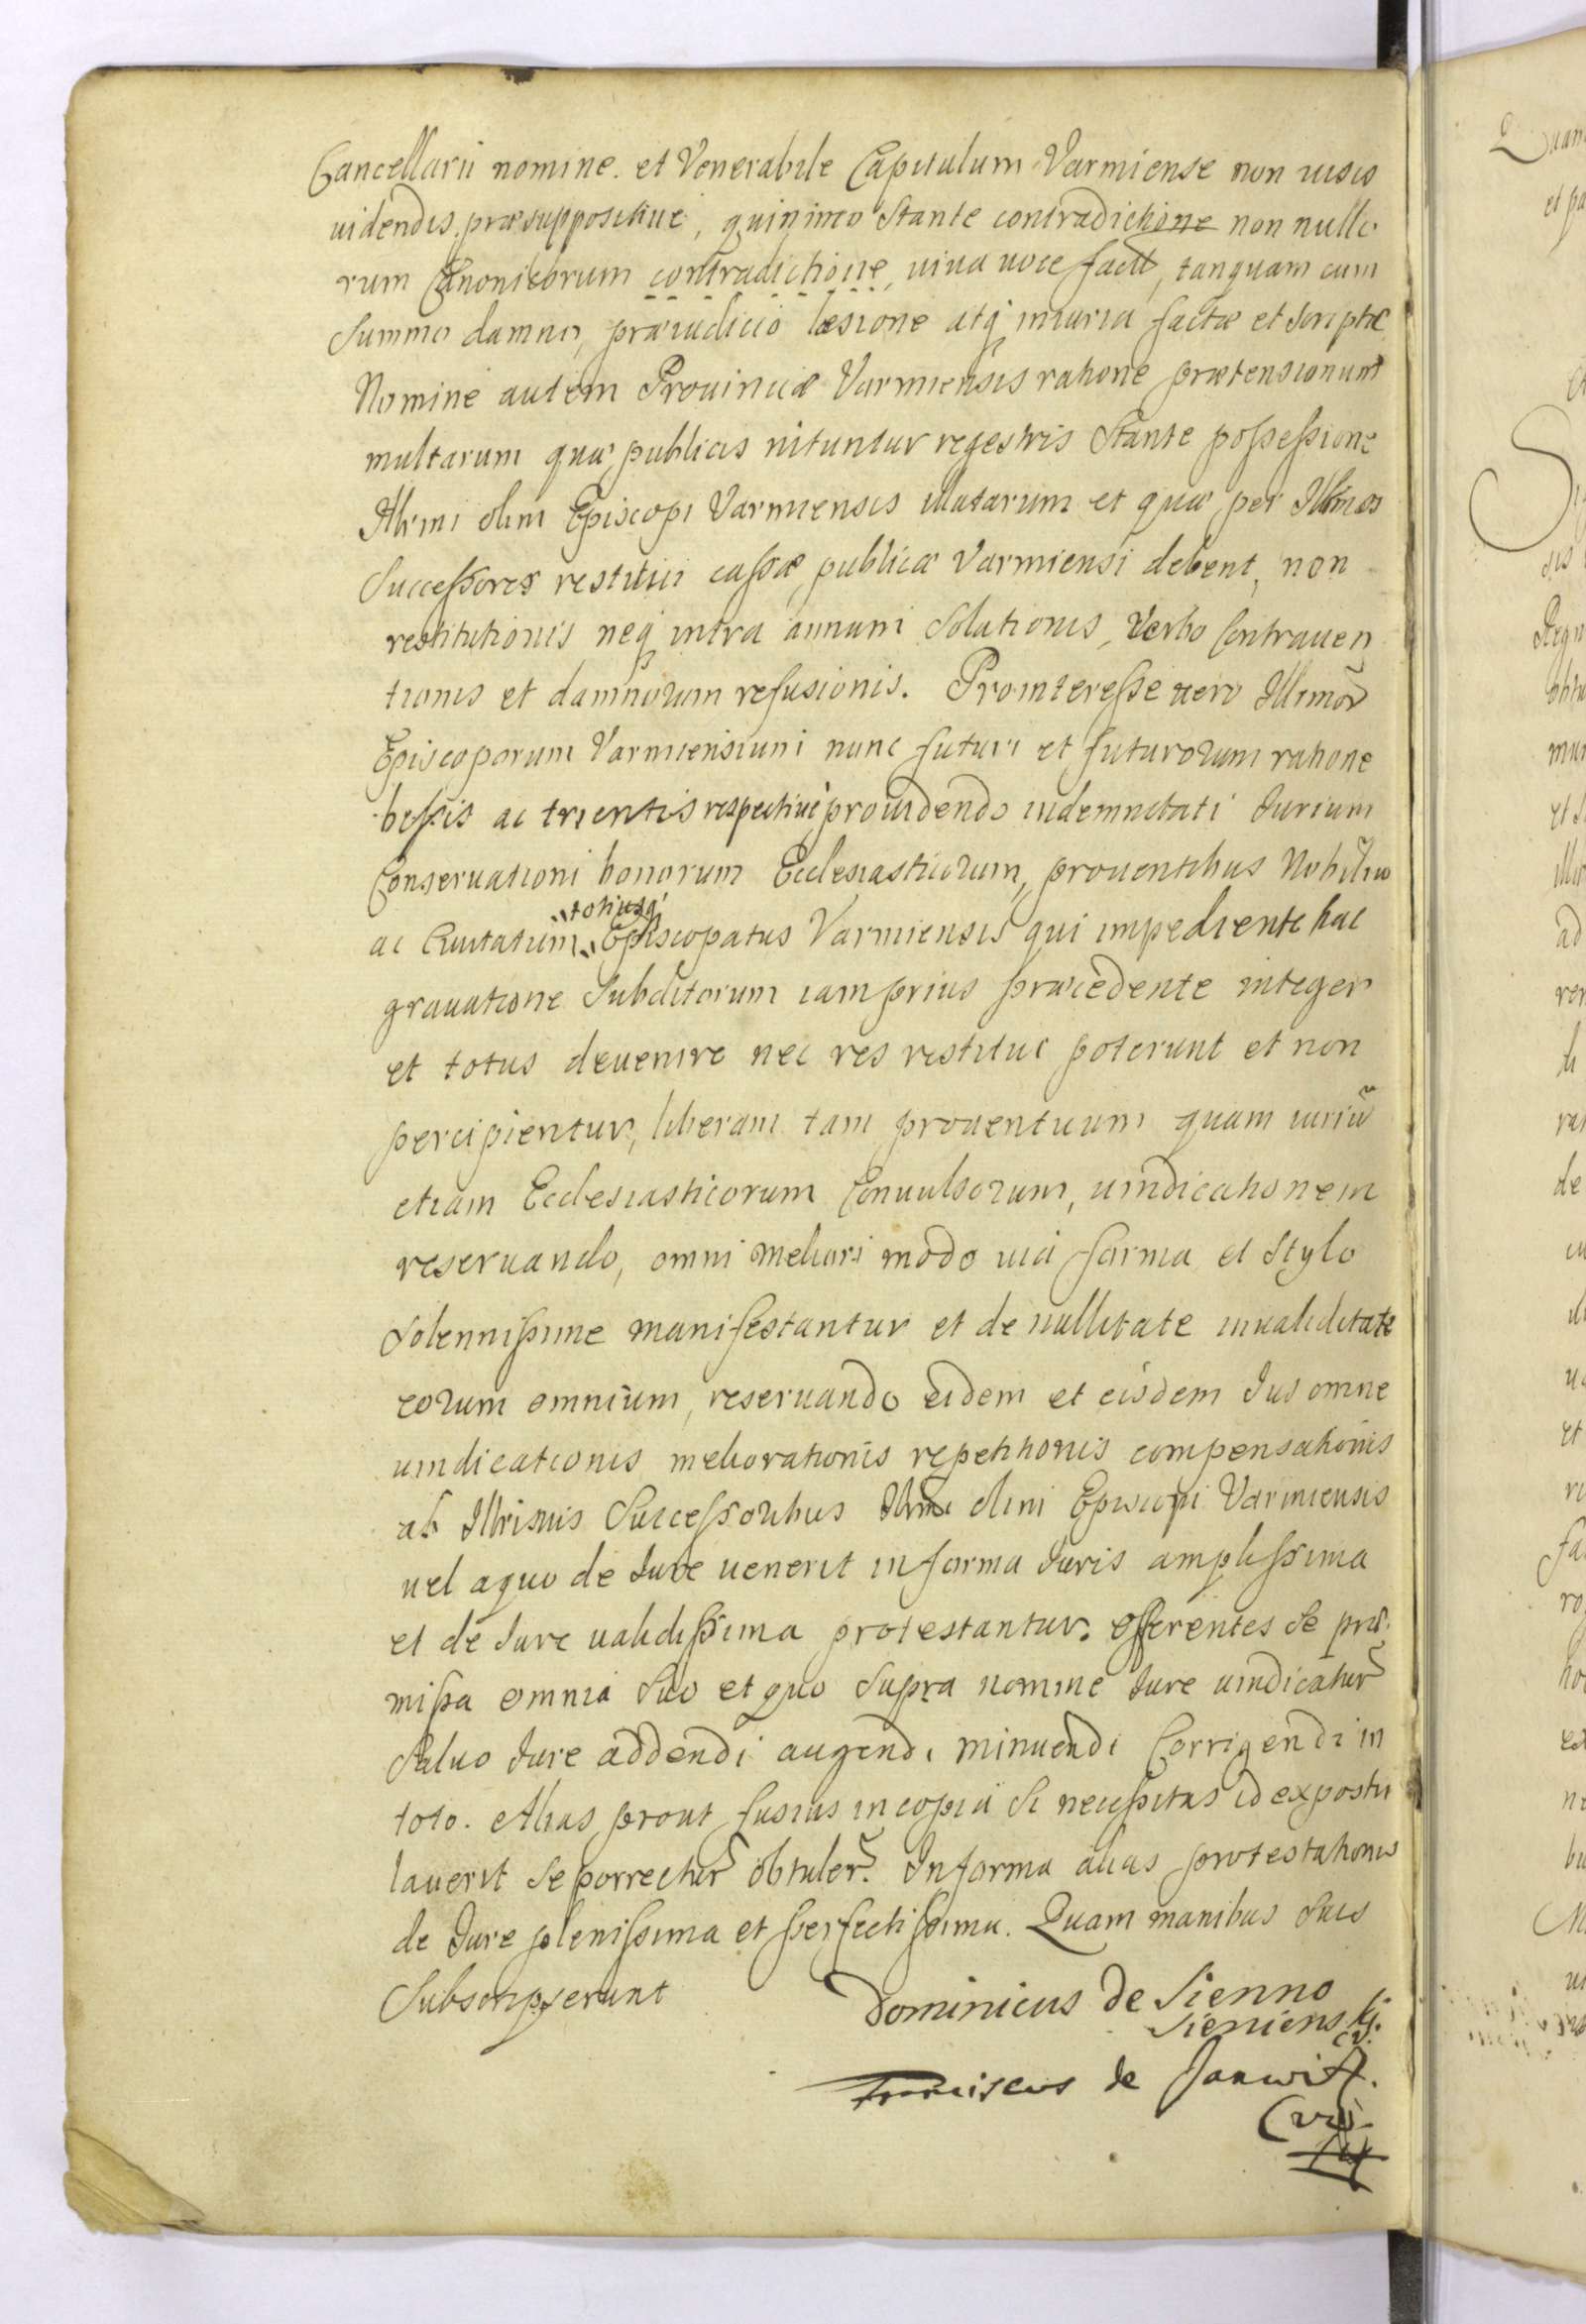 Cancellarii nomine. et Venerabile Capitulum Varmiense non uisis
uidendis præsuppositiue, quinimo Stante contradictione non nullo
rum Canonicorum contradictione, uiua uoce facta, tanquam cum
Summo damno, præiudicio læsione atq iniuria factæ et Scriptæ
Nomine autem Prouinciæ Varmiensis ratione prætensionum
multarum quæ publicis nituntur regestris Stante poſseſsione
Illrmi olim Episcopi Varmiensis illatarum et quæ per Illrmos
Succeſsores restitui caſsæ publicæ Varmiensi debent, non
restitutionis neq intra annum Solutionis, Verbo Contrauen
tionis et damnorum refusionis. Prointereſse uero Illrmor
Episcoporum Varmiensium nunc futuri et futurorum ratione
beſsis ac trientis respectiue prouidendo indemnitati Iurium
Conseruationi bonorum Ecclesiasticorum, prouentibus Nobiliũ
totiusq
ac Ciuitatum Episcopatus Varmiensis qui impediente hac
grauatione Subditorum iamprius præcedente integer
et totus deuenire nec res restitui poterunt et non
percipientur, liberam tam prouentuum quam iuriũ
etiam Ecclesiasticorum Conuulsorum, uindicationem
reseruando, omni meliori modo uia forma et Stylo
Solenniſsime manifestantur et de nullitate inualiditate
eorum omnium, reseruando eidem et eisdem Ius omne
uindicationis meliorationis repetitionis compensationis
ab Illrismis Succeſsoribus Illrmi olim Episcopi Varmiensis
uel aquo de Iure uenerit informa Iuris ampliſsima
et de Iure ualidiſsima protestantur. offerentes Se præ
miſsa omnia Suo et quo Supra nomine Iure uindicatur
Saluo Iure addendi augendi minuendi Corrigendi in
toto. Alias prout fusius incopia Si neceſsitas id expostu
lauerit Se porrectur obtuler. Informa alias protestationis
de Iure pleniſsima et perfectiſsima. Quam manibus Suis
Subscripserunt
Dominicus de Sienno
Sieniensky.
Franciscus de